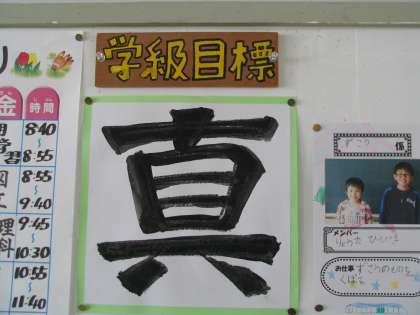 学級目標
真
り
金
時間
じかん
8:40
〜
8:55
8:55
〜
9:40
9:45
〜
10:30
10:55
〜
11:40
理科
ずこう 係
メンバー
お仕事
ずこうのものを
くばる